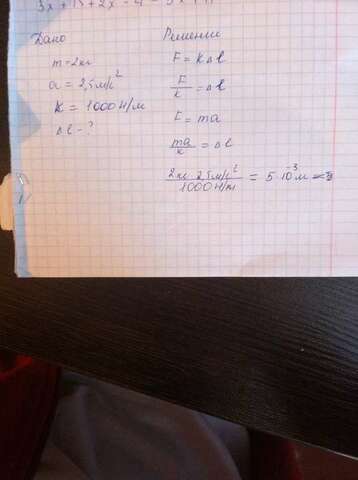 3x + 15 + 2x - 4 = 3x + 11
Дано
m = 2кг
a = 2,5м/с²
K = 1000 Н/м
Δl - ?
Решение
F = KΔl
F/K = Δl
F = ma
ma/K = Δl
2кг 2,5м/с² / 1000 Н/м = 5·10⁻³ м